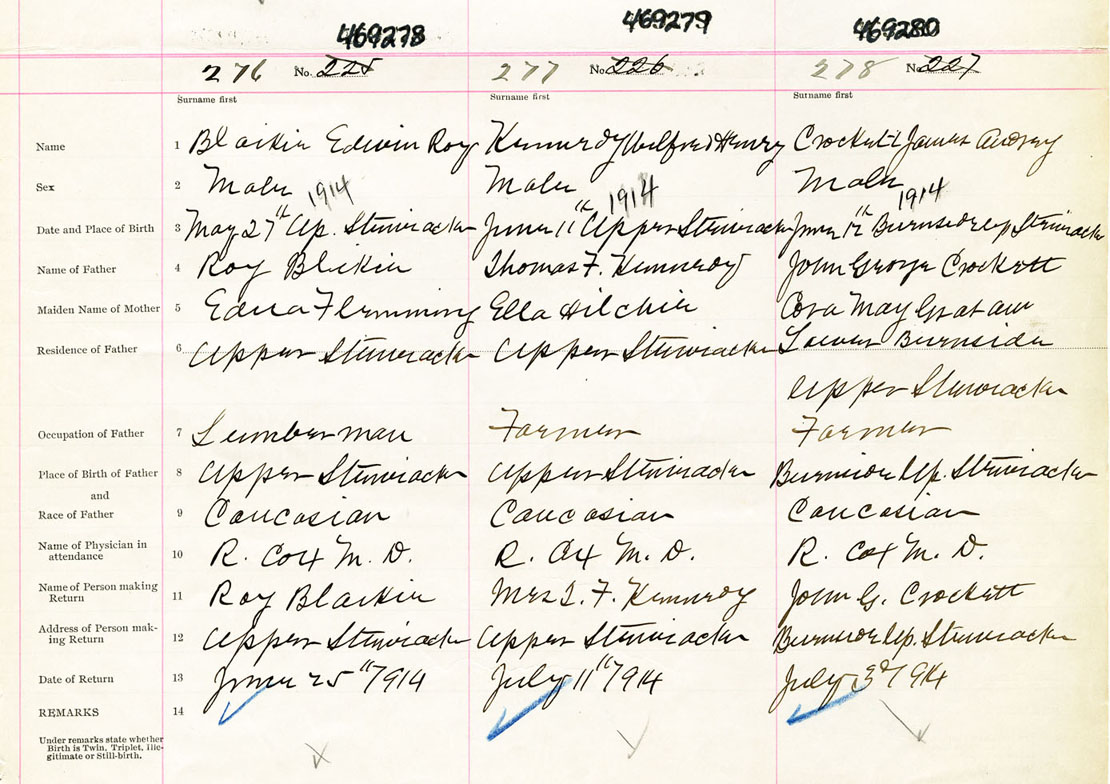 469278 469279 469280
276 No. 225 277 No. 226 278 No. 227
Surname first Surname first Surname first
Name 1 Blaikie Edwin Roy Kennedy Wilfred Henry Crockett James Audrey
Sex 2 Male Male Male
1914 1914 1914
Date and Place of Birth 3 May 27th Up. Stewiacke June 11th Upper Stewiacke June 12th Burnside up Stewiacke
Name of Father 4 Roy Blaikie Thomas F. Kennedy John George Crockett
Maiden Name of Mother 5 Edna Flemming Ella Hilchie Cora May Graham
Residence of Father 6 Upper Stewiacke Upper Stewiacke Lower Burnside
Upper Stewiacke
Occupation of Father 7 Lumberman Farmer Farmer
Place of Birth of Father 8 Upper Stewiacke Upper Stewiacke Burnside Up. Stewiacke
and
Race of Father 9 Caucasian Caucasian Caucasian
Name of Physician in
attendance 10 R. Cox M. D. R. Cox M. D. R. Cox M. D.
Name of Person making
Return 11 Roy Blaikie Mrs T. F. Kennedy John G. Crockett
Address of Person mak-
ing Return 12 Upper Stewiacke Upper Stewiacke Burnside Up. Stewiacke
Date of Return 13 June 25th/1914 July 11th/1914 July 3d/1914
REMARKS 14
Under remarks state whether
Birth is Twin, Triplet, Ille-
gitimate or Still-birth.